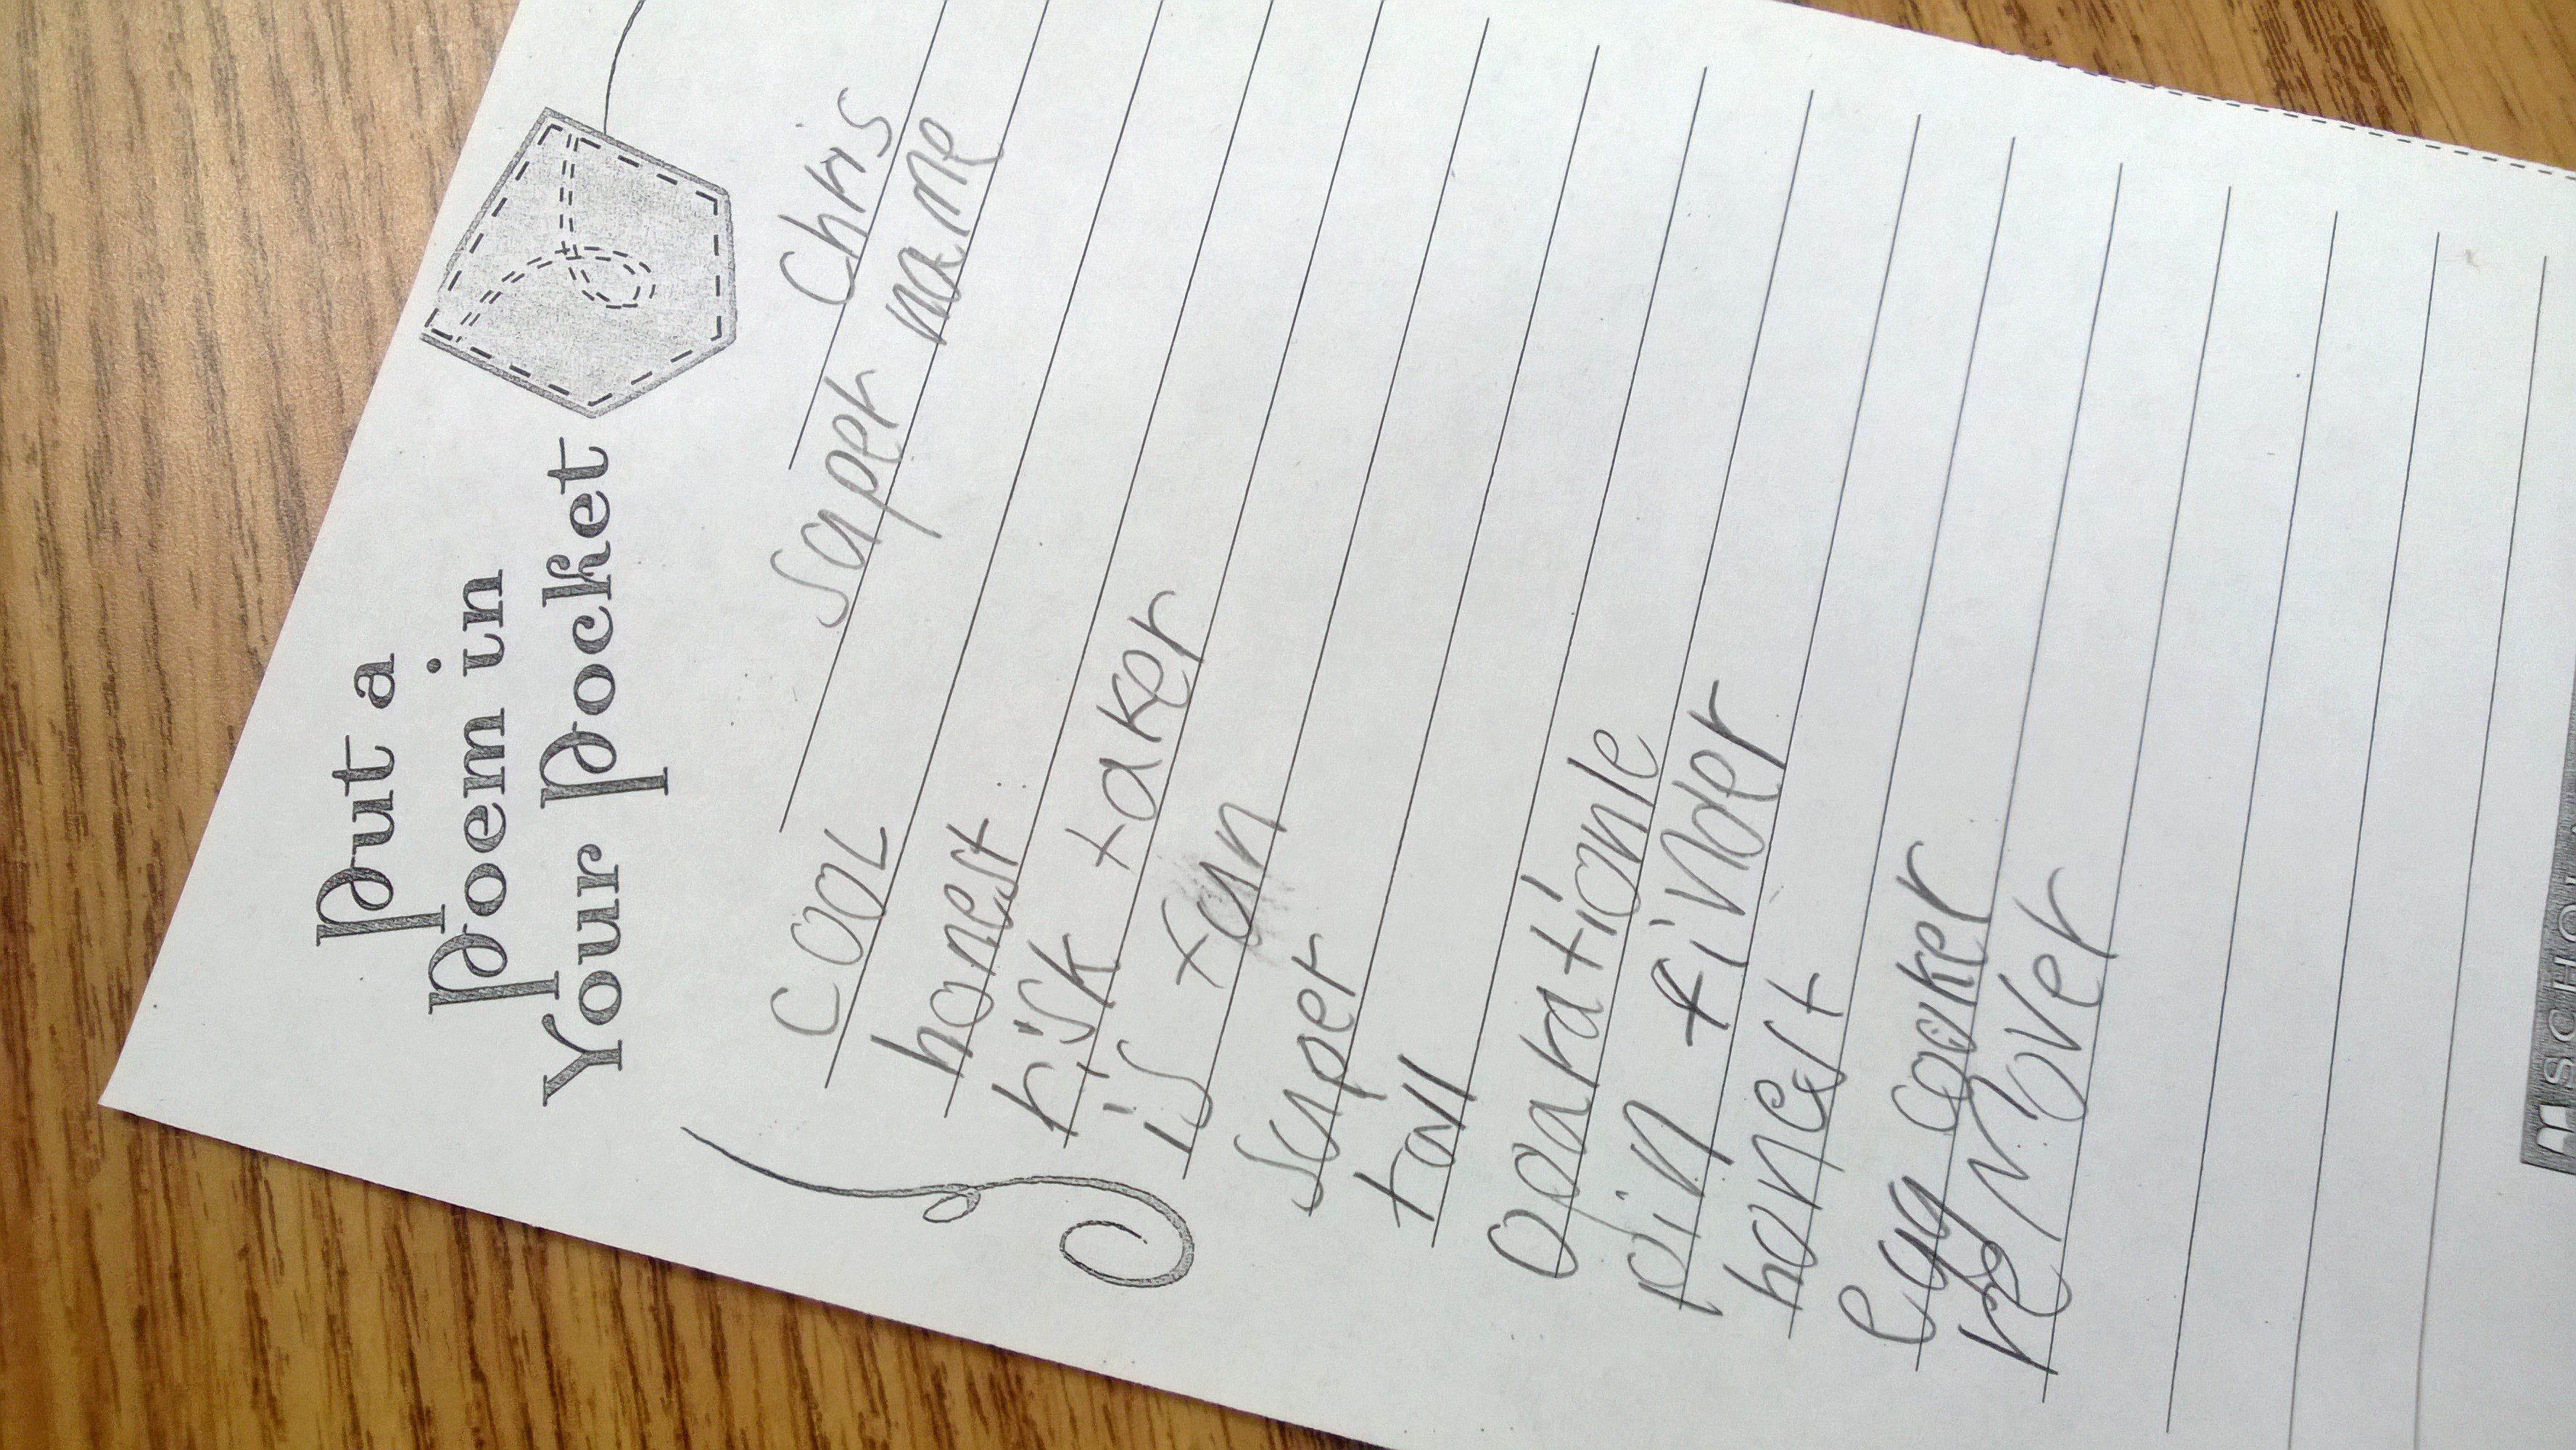 Put a
Poem in
Your Pocket
Chris
super name
cool
honest
risk taker
is fun
super
tall
oparationle
pin finder
honest
egg cooker
SCHOL